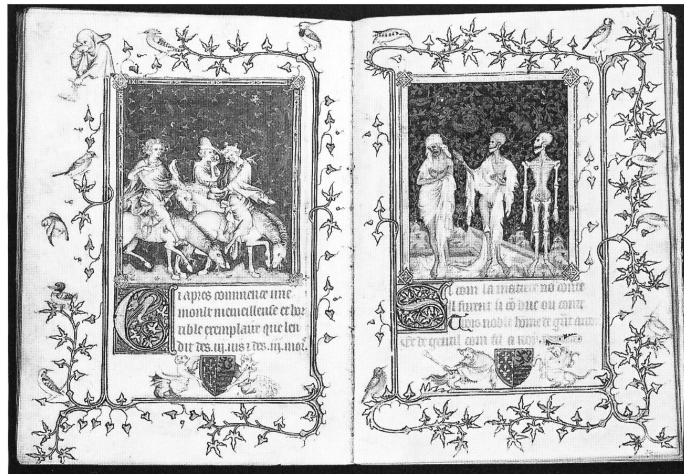 Ci apres commence une
moult merueilleuse et hor
rible exemplaire que len
dit des .iij. uis ⁊ des .iij. mor.
Si com la matiere no conte
Il furent si cō duc ou conte
Trois noble home de
Et de com fil a roy